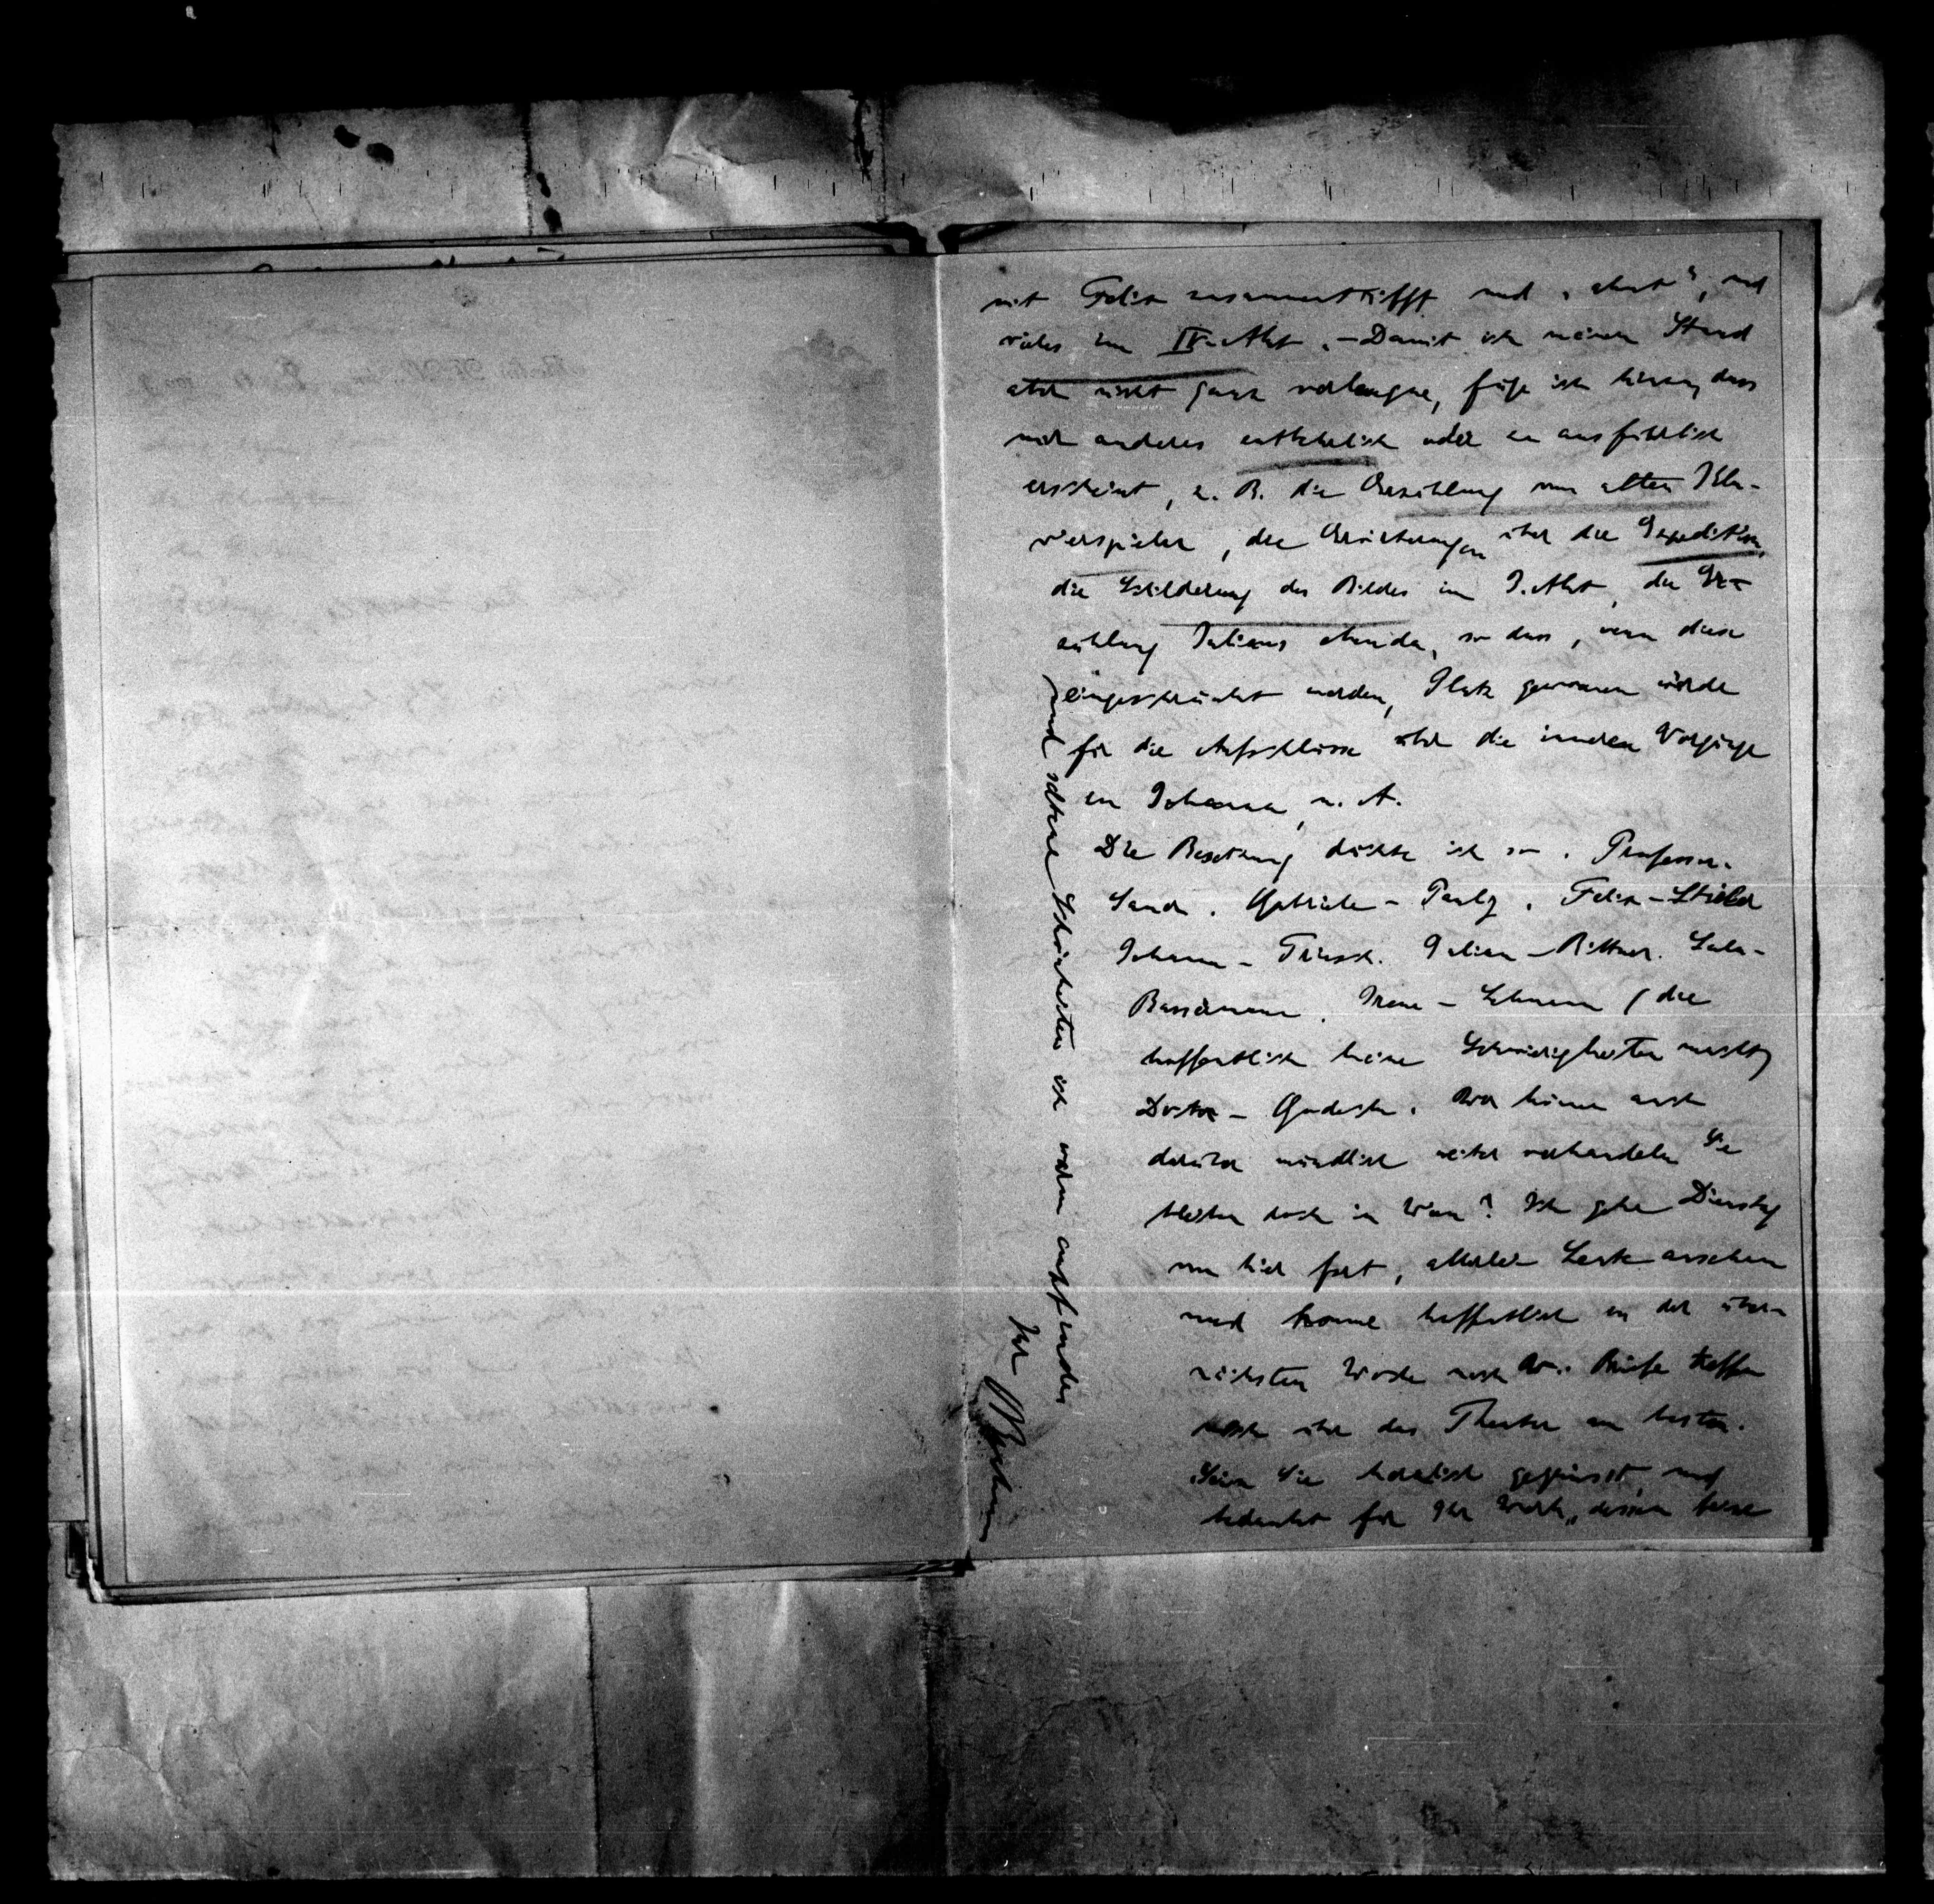 mit Felix zusammentrifft und „ahnt“, und
vieles im IV. Akt. – Damit ich meinen Stand
aber nicht ganz verleugne, füge ich hinzu, dass
mir anderes entbehrlich oder zu ausführlich
erscheint, z. B. die Erzählung vom alten Kla-
vierspieler, die Erörterungen über die Expedition,
die Schilderung des Bildes im I. Akt, die Er-
zählung Julians ebenda, so dass, wenn diese
eingeschränkt werden, Platz gewonnen würde
für die Aufschlüsse über die inneren Vorgänge
in Johanna, u. A.
Die Besetzung dächte ich so. Professor-
Sauer. Gabriele – Pauly. Felix – Stieler
Johanna – Triesch. Julian – Rittner. Sala –
Bassermann. Irene – Lehmann (die
hoffentlich keine Schwierigkeiten macht)
Doctor – . Wir können auch
darüber mündlich weiter verhandeln Sie
bleiben doch in Wien? Ich gehe Dienstag
von hier fort, allerlei Leute ansehen
und komme hoffentlich in der über-
nächsten Woche nach W.. Briefe treffen
mich über das Theater am besten.
Seien Sie herzlich gegrüsst, und
bedankt für Ihr Werk, dessen feine
und seltene Schönheiten ich warm empfinde
Ihr Brahm